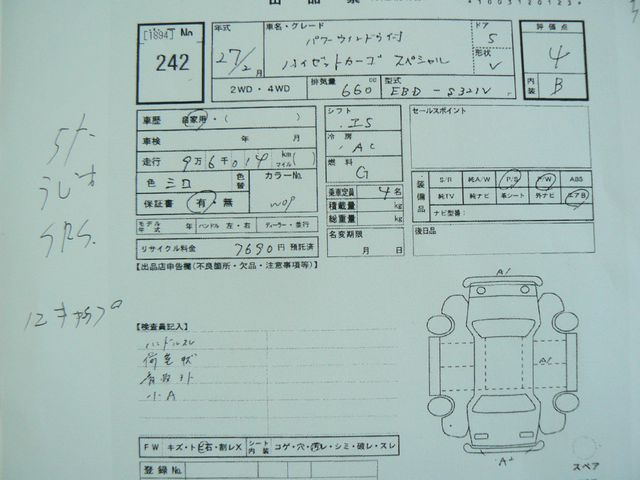 [1894] No
242
年式
27/2月
車名・グレード
パワーウィンドウ付
ハイゼットカーゴ スペシャル
ドア
5
形状
V
評価点
4
内装
B
2WD・4WD
排気量
660 cc
型式
EBD-S321V
車歴 自家用・( )
車検 年 月
走行 9万6千014 km マイル
色 シロ
色替
カラーNo.
W09
保証書 有・無
モデル年式 年 ハンドル 左・右 ディーラー・並行
リサイクル料金 7690円 預託済
シフト
I5
冷房
AC
燃料
G
乗車定員 4名
積載量 kg
総重量 kg
名変期限
月 日
セールスポイント
装備品
S/R 純A/W P/S P/W ABS
純TV 純ナビ 革シート 外ナビ エアB
ナビ型番:
後日品
【出品店申告欄(不良箇所・欠品・注意事項等)】
【検査員記入】
ハンドルスレ
荷室状
小A
FW キズ・ト石・割レX シート内装 コゲ・穴・汚レ・シミ・破レ・スレ
登録No.
A1
A1
スペア
ラジオ
SRS.
12キャップ